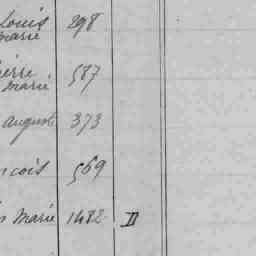 Louis
Marie 298
ierre
Marie 587
auguste 373
ncois 569
Marie 1482 II